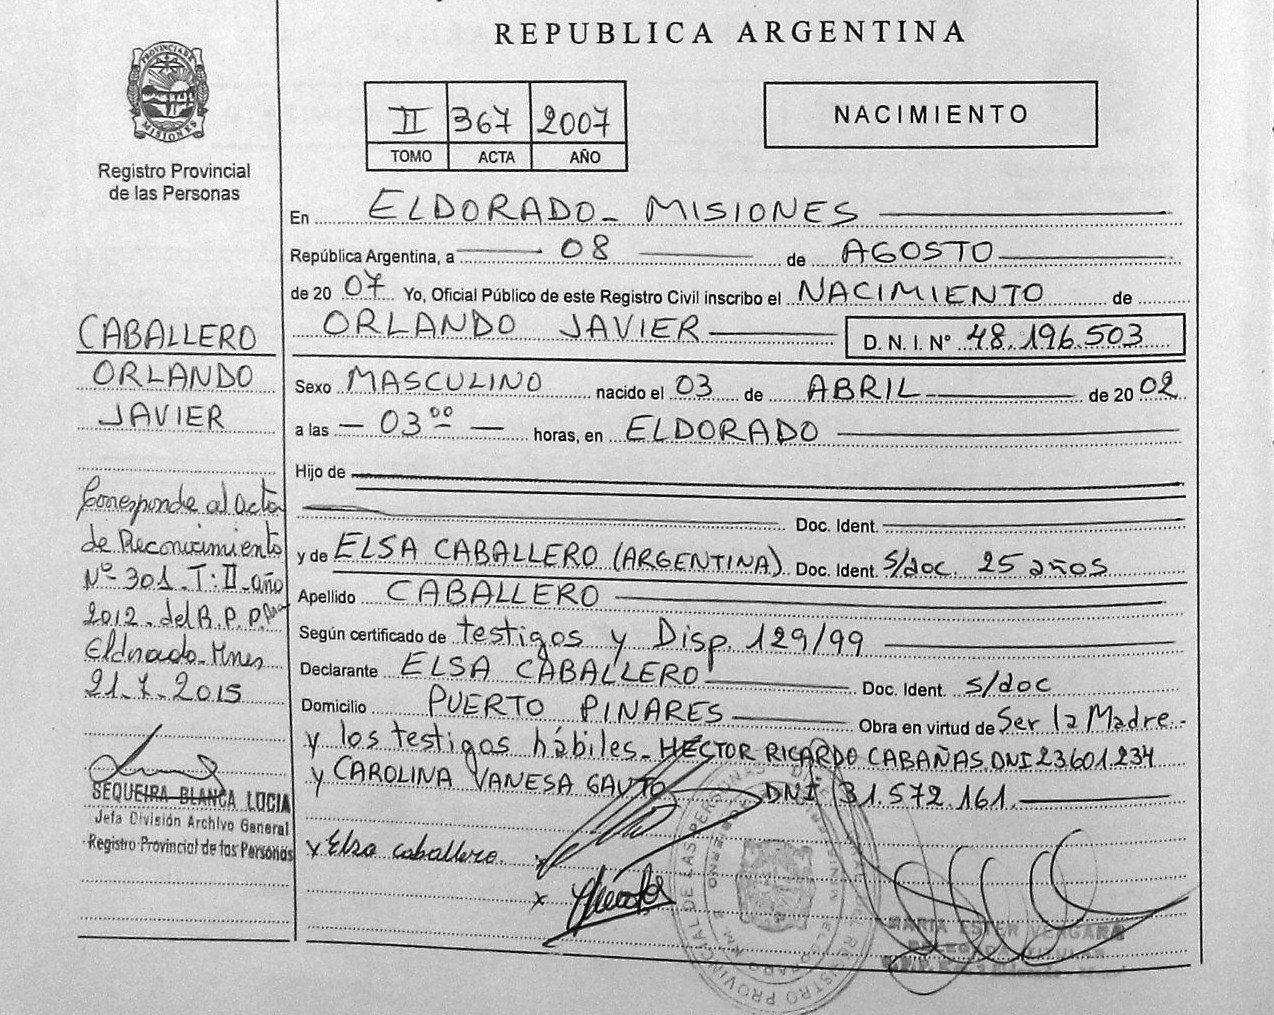 REPUBLICA ARGENTINA
PROVINCIA DE MISIONES
Registro Provincial
de las Personas
II 367 2007
TOMO ACTA AÑO
NACIMIENTO
En ELDORADO - MISIONES
República Argentina, a 08 de AGOSTO
de 2007 Yo, Oficial Público de este Registro Civil inscribo el NACIMIENTO de
ORLANDO JAVIER D. N. I. N° 48.196.503
Sexo MASCULINO nacido el 03 de ABRIL de 2002
a las - 03 00 - horas, en ELDORADO
Hijo de
Doc. Ident.
y de ELSA CABALLERO (ARGENTINA) Doc. Ident. s/doc 25 años
Apellido CABALLERO
Según certificado de testigos y Disp. 129/99
Declarante ELSA CABALLERO Doc. Ident. s/doc
Domicilio PUERTO PINARES Obra en virtud de Ser la Madre -
y los testigos hábiles - HÉCTOR RICARDO CABAÑAS DNI 23601.234
y CAROLINA VANESA GAUTO DNI 31.572.161.
x Elsa caballero. x
x
MARIA ESTER VERGARA
DELEGADA TITULAR
CABALLERO
ORLANDO
JAVIER
Corresponde al acta
de Reconocimiento
Nº 301 - T: II - año
2012 - del R. P. P.
Eldorado - Mnes
21.7.2015
SEQUEIRA BLANCA LUCIA
Jefa División Archivo General
Registro Provincial de las Personas